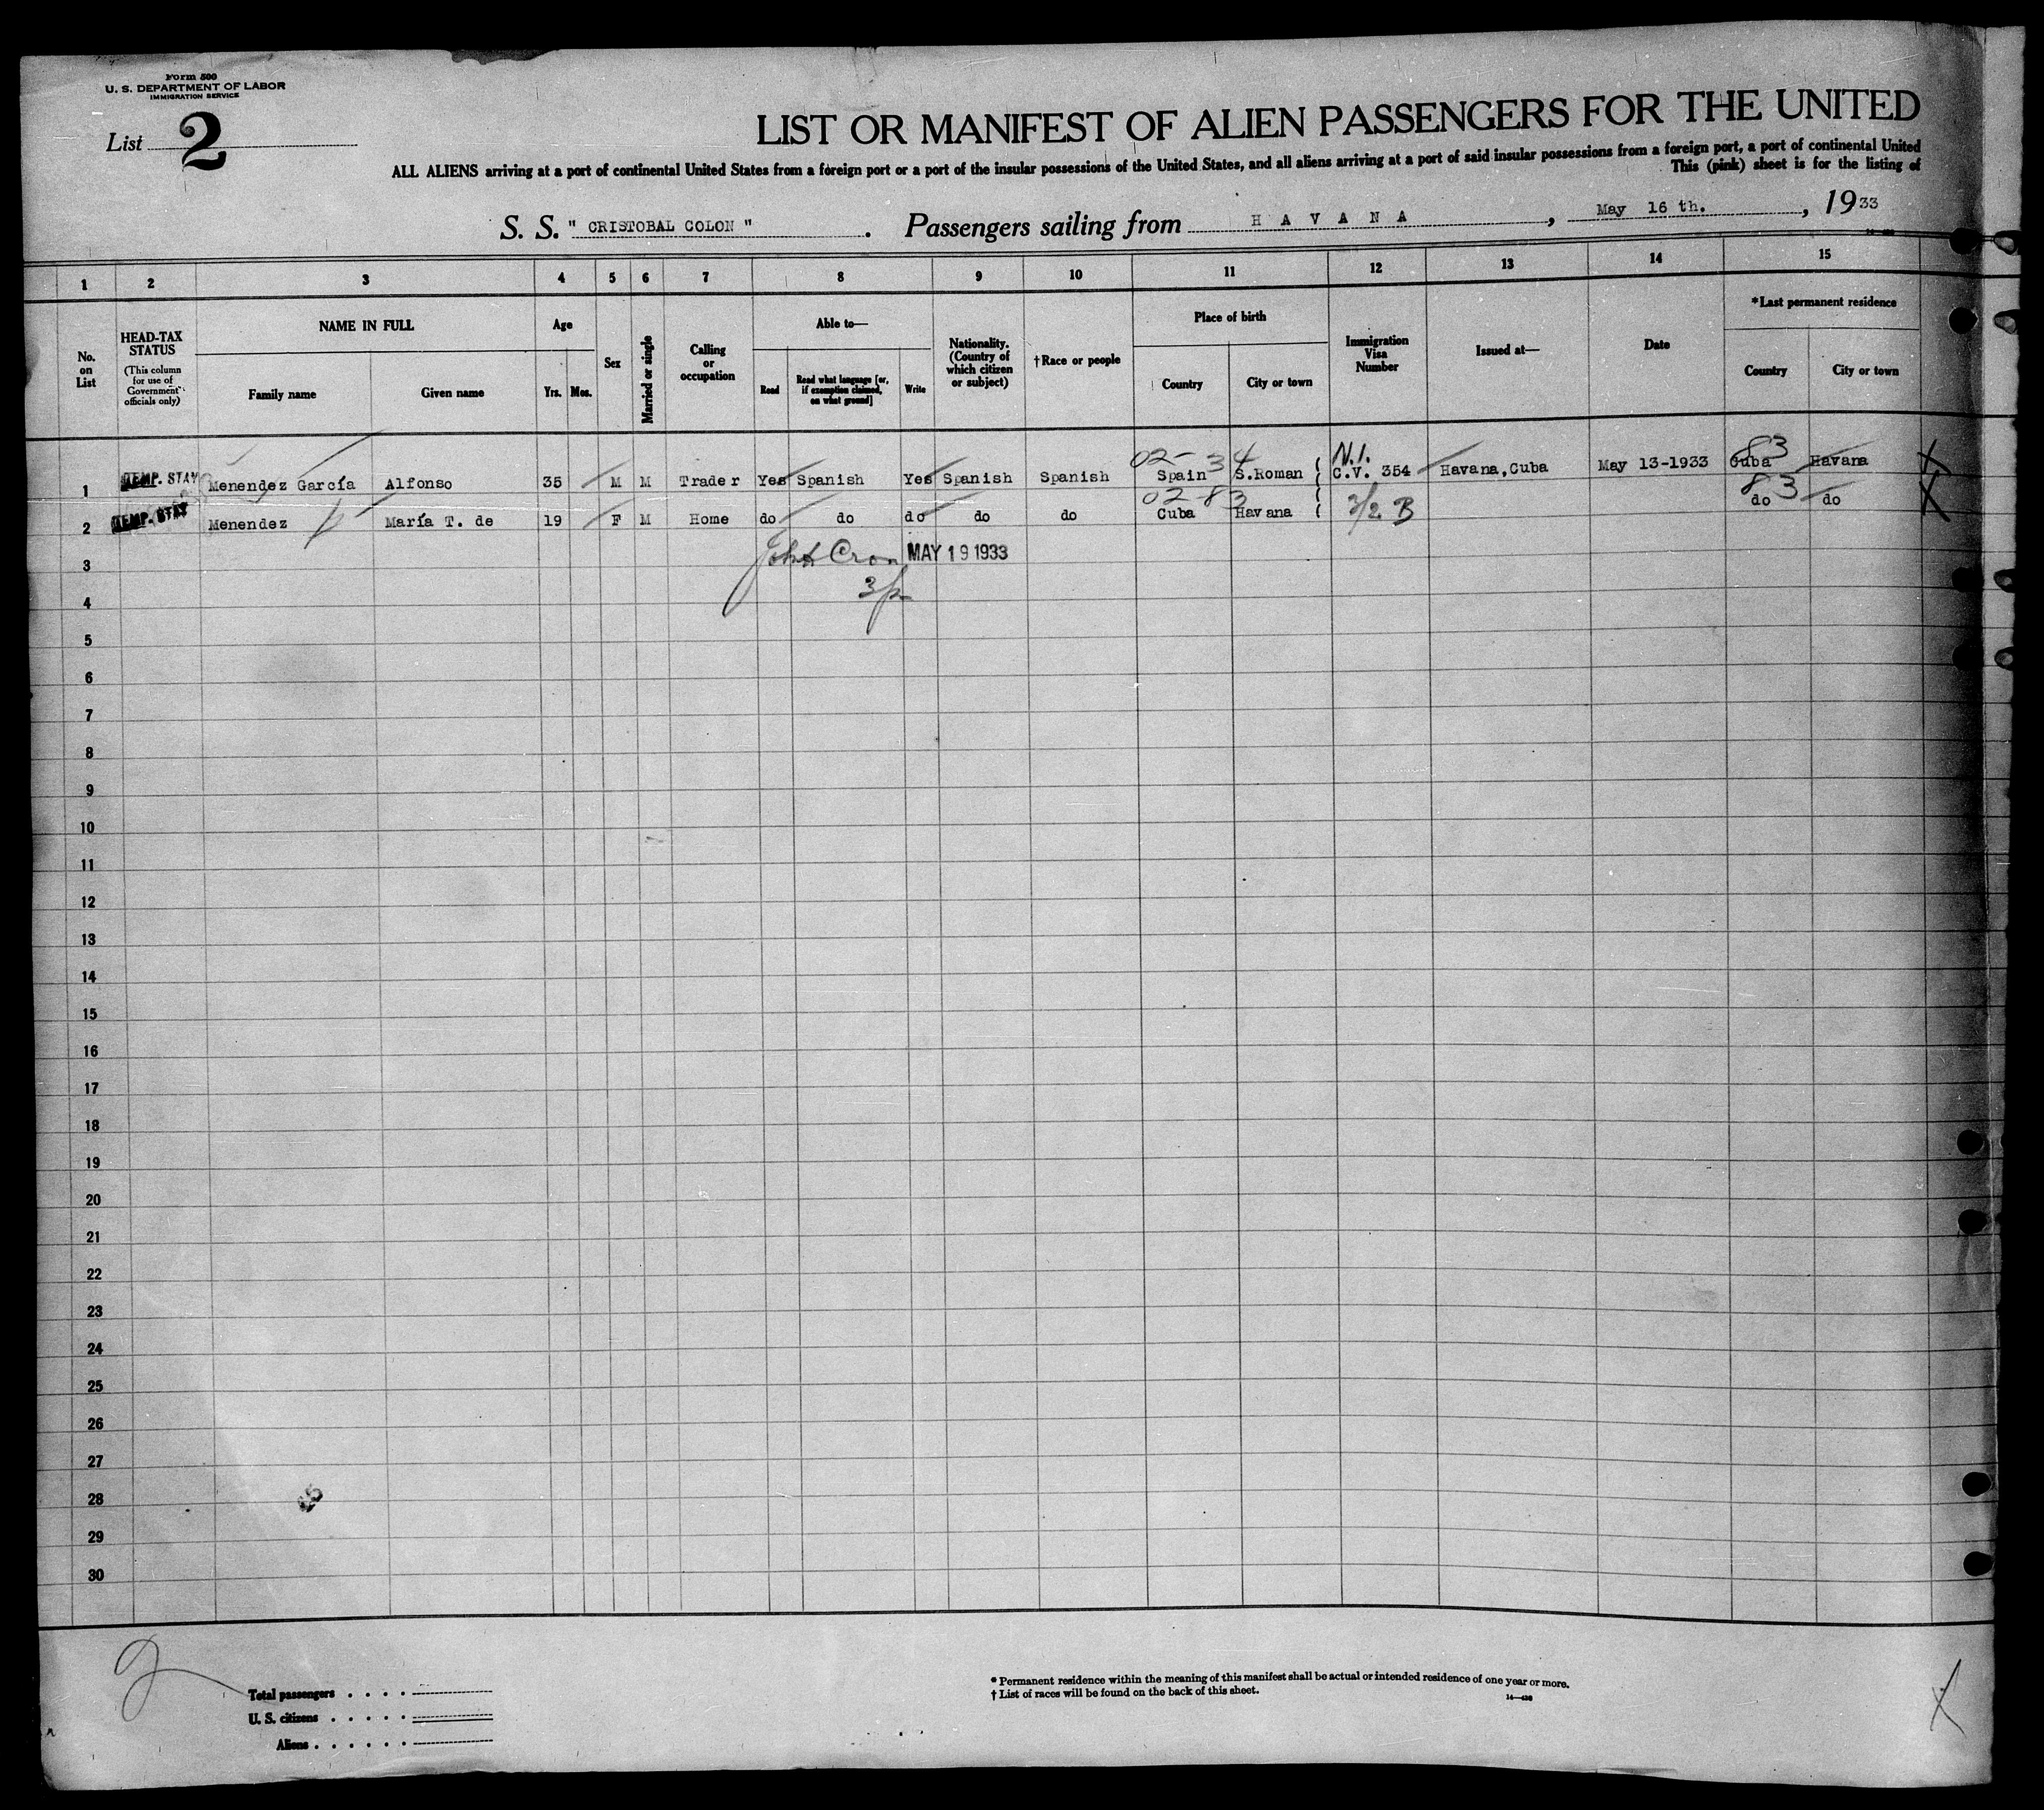 Form 500
U. S. DEPARTMENT OF LABOR
IMMIGRATION SERVICE
List 2
LIST OR MANIFEST OF ALIEN PASSENGERS FOR THE UNITED
ALL ALIENS arriving at a port of continental United States from a foreign port or a port of the insular possessions of the United States, and all aliens arriving at a port of said insular possessions from a foreign port, a port of continental United
This (pink) sheet is for the listing of
S. S. " CRISTOBAL COLON " . Passengers sailing from H A V A N A , May 16 th. , 1933
1 2 3 4 5 6 7 8 9 10 11 12 13 14 15
No. on List
HEAD-TAX STATUS
(This column for use of Government officials only)
NAME IN FULL
Family name
Given name
Age
Yrs. Mos.
Sex
Married or single
Calling or occupation
Able to—
Read
Read what language [or, if exemption claimed, on what ground]
Write
Nationality. (Country of which citizen or subject)
†Race or people
Place of birth
Country
City or town
Immigration Visa Number
Issued at—
Date
*Last permanent residence
Country
City or town
02- 34 N.I. 83
1 TEMP. STAY Menendez García Alfonso 35 M M Trader Yes Spanish Yes Spanish Spanish Spain S.Roman C.V. 354 Havana,Cuba May 13-1933 Cuba Havana X
02-83 83
2 TEMP. STAY Menendez María T. de 19 F M Home do do do do do Cuba Havana 3/2 B do do X
3 MAY 19 1933
4
5
6
7
8
9
10
11
12
13
14
15
16
17
18
19
20
21
22
23
24
25
26
27
28
29
30
2
Total passengers . . . .
U. S. citizens . . . . .
Aliens . . . . . .
* Permanent residence within the meaning of this manifest shall be actual or intended residence of one year or more.
† List of races will be found on the back of this sheet.
X